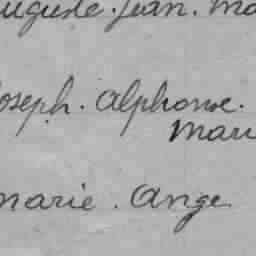 uguste. Jean. Ma
oseph. Alphonse.
Mari
marie. Ange